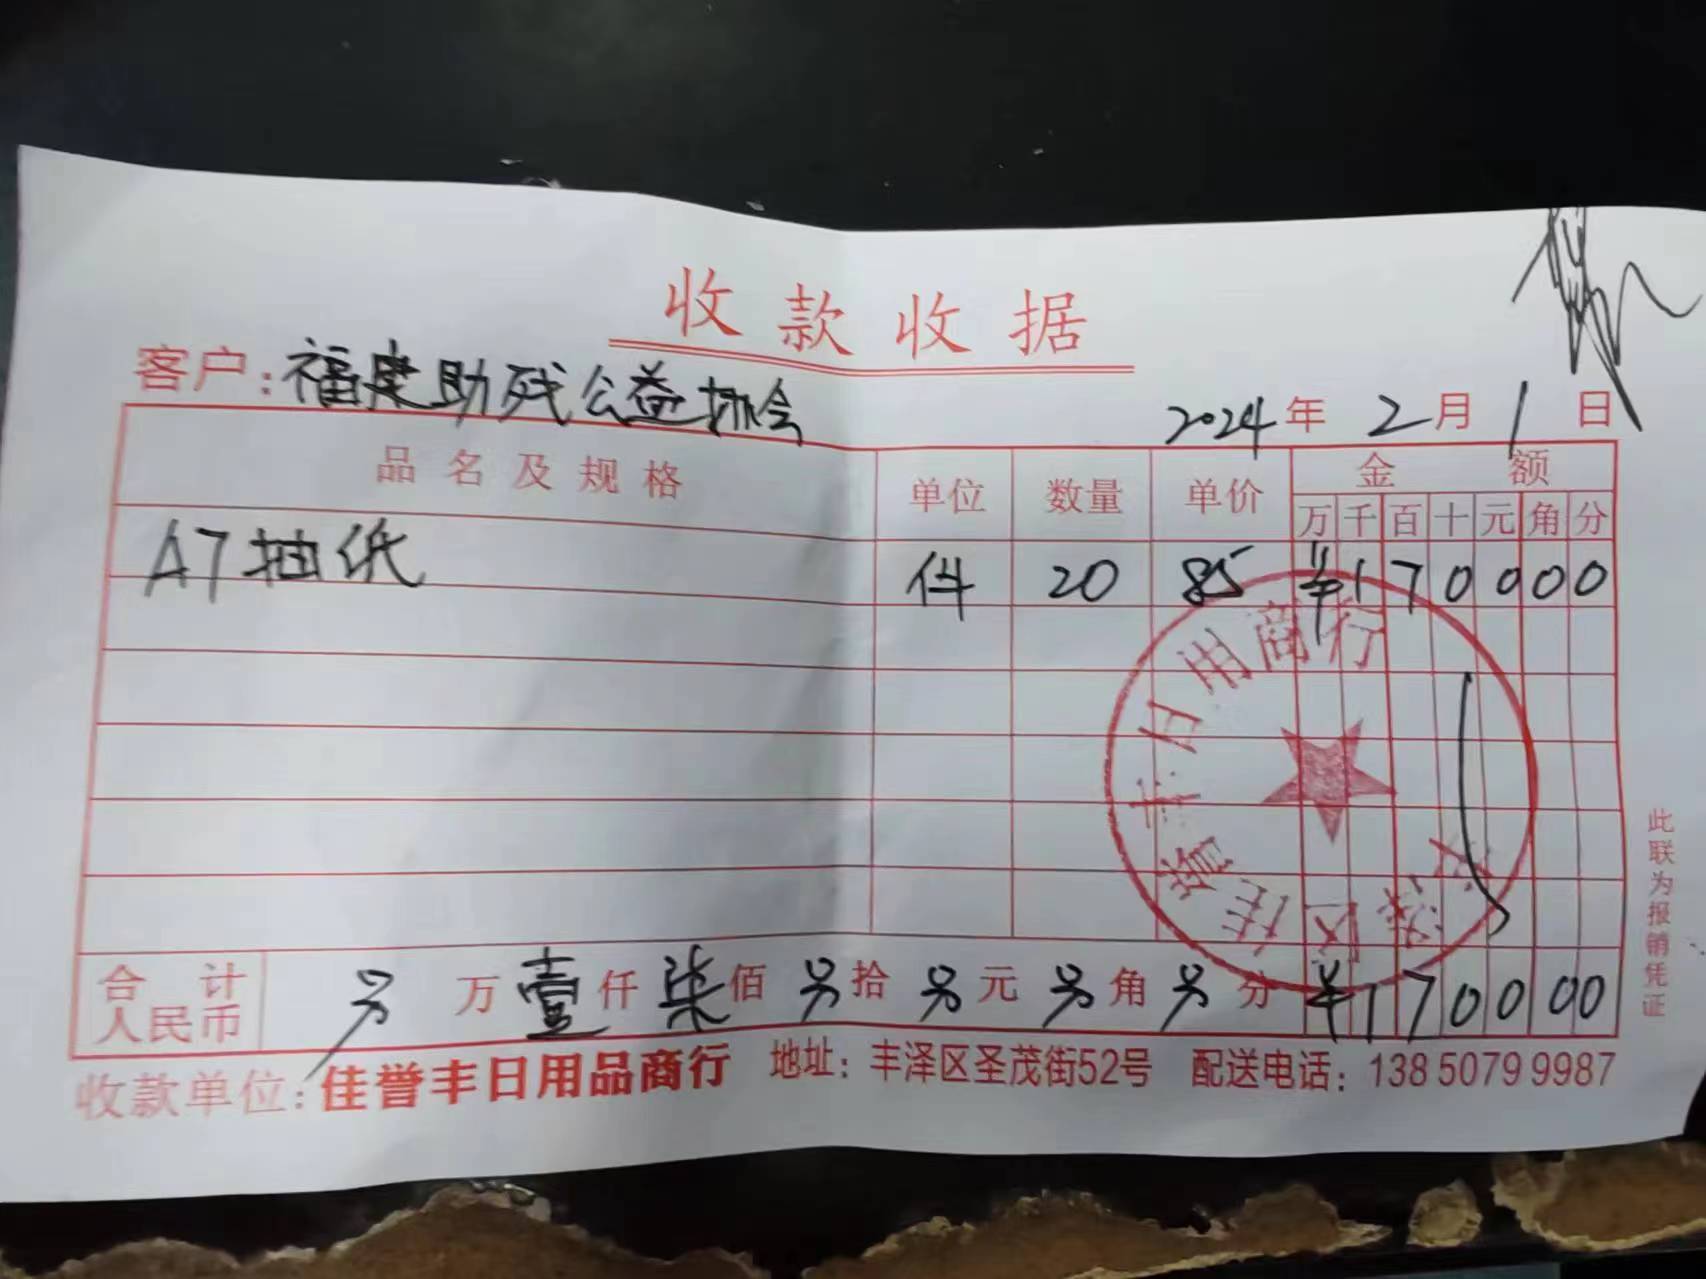 收款收据
客户:福建助残公益协会
2024年2月1日
品名及规格 单位 数量 单价 金额
万 千 百 十 元 角 分
A7抽纸 件 20 85 ¥170000
佳誉丰日用商行
合计人民币 另万壹仟柒佰另拾另元另角另分 ¥170000
收款单位:佳誉丰日用品商行 地址:丰泽区圣茂街52号 配送电话:138 5079 9987
此联为报销凭证